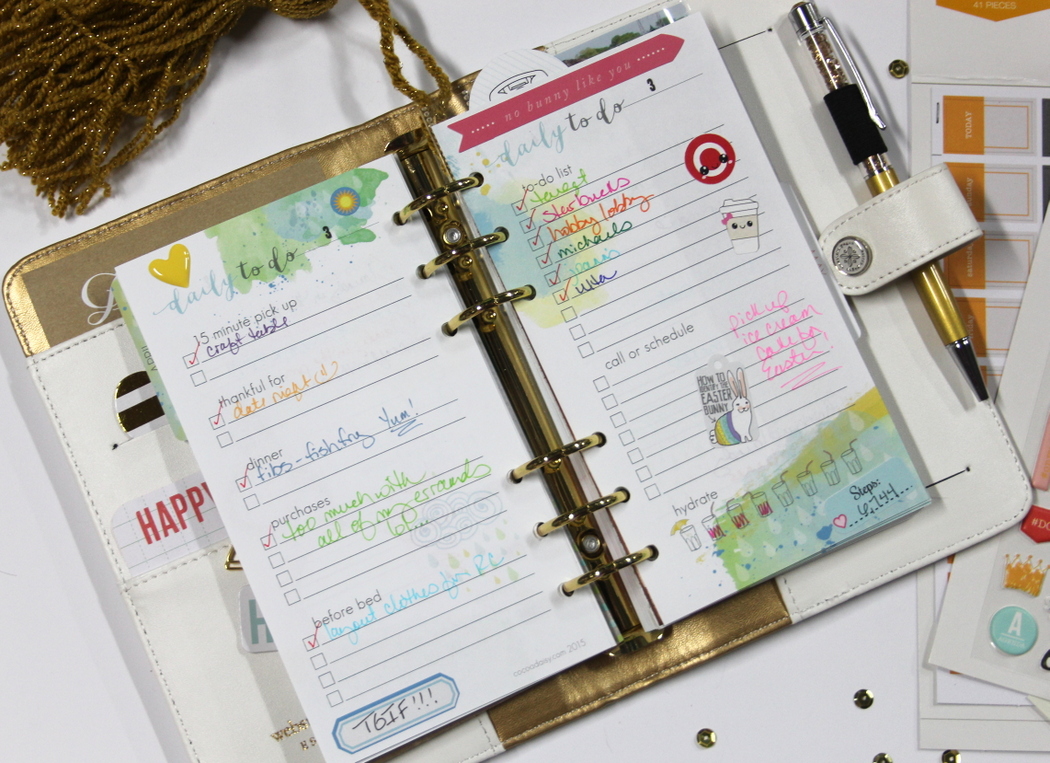 daily to do
3
15 minute pick up
craft table
thankful for
date night
dinner
ribs - fish fry Yum!
purchases
too much with
all of my errands
before bed
layout clothes for RC
cocoadaisy.com 2015
TGIF!!!
HAPPY
H
no bunny like you
daily to do
3
to-do list
target
Starbucks
hobby lobby
michaels
ulta
call or schedule
pick up
ice cream
cake for
Easter!
HOW TO
IDENTIFY THE
EASTER
BUNNY
hydrate
Steps:
41 PIECES
TODAY
saturday
A